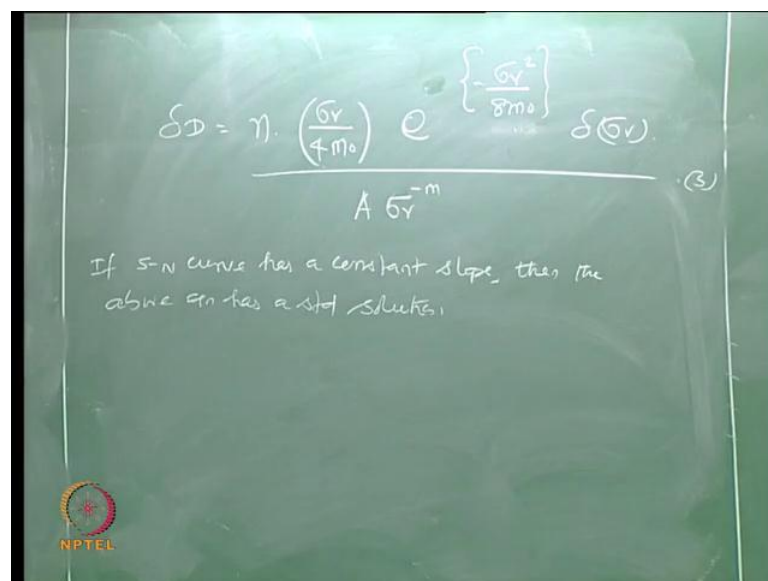 δD = n. (σr / 4m₀) e^{-σr² / 8m₀} δ(σr). / A σr^{-m} .(3)
If S-N curve has a constant slope, then the
above eqn has a std solution.
NPTEL